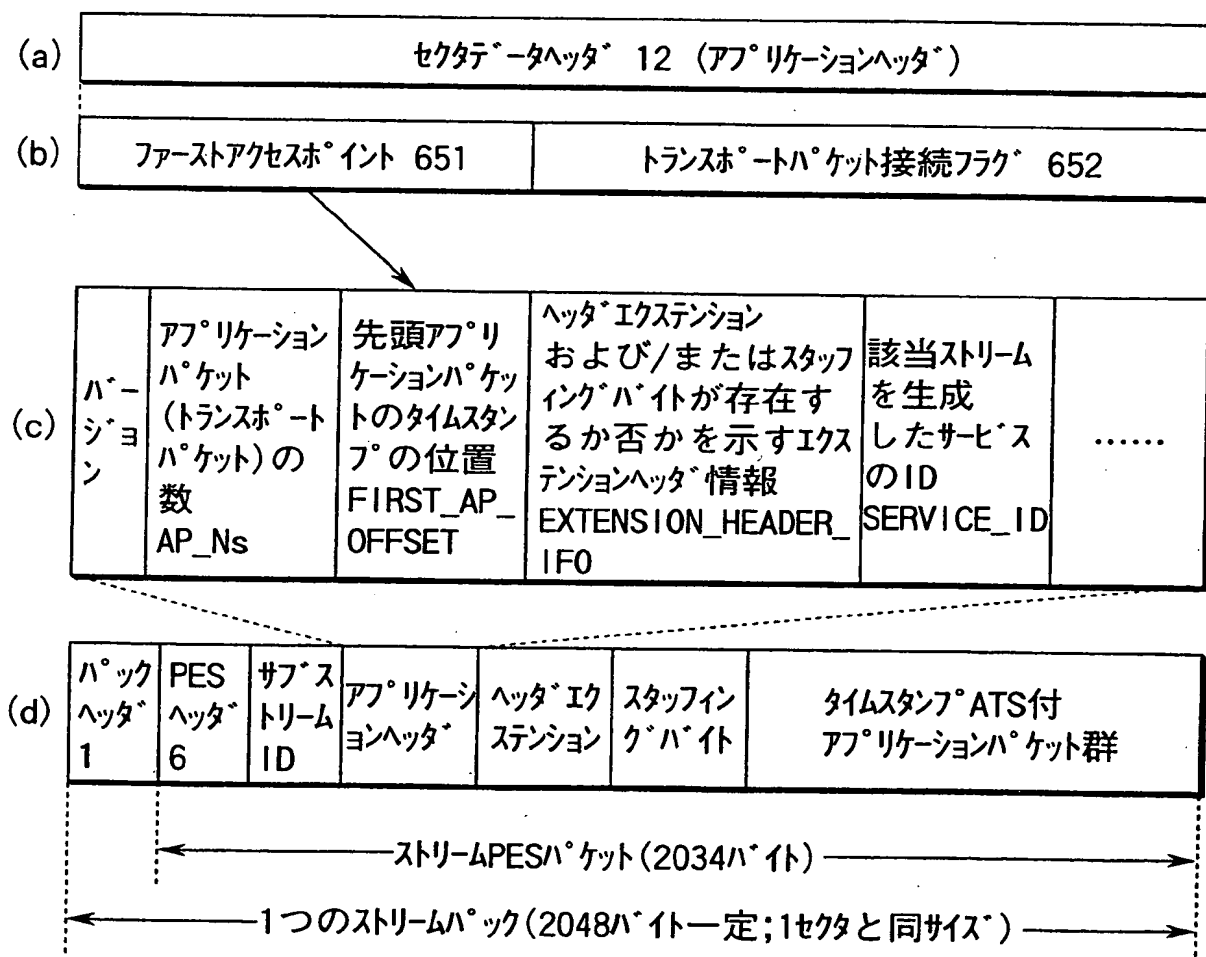 (a)
セクタデータヘッダ 12 (アプリケーションヘッダ)
(b)
ファーストアクセスポイント 651
トランスポートパケット接続フラグ 652
(c)
バー
ジョ
ン
アプリケーション
パケット
(トランスポート
パケット)の
数
AP_Ns
先頭アプリ
ケーションパケッ
トのタイムスタン
プの位置
FIRST_AP_
OFFSET
ヘッダエクステンション
および/またはスタッフ
ィングバイトが存在す
るか否かを示すエクス
テンションヘッダ情報
EXTENSION_HEADER_
IFO
該当ストリーム
を生成
したサービス
のID
SERVICE_ID
……
(d)
パック
ヘッダ
1
PES
ヘッダ
6
サブス
トリーム
ID
アプリケーシ
ョンヘッダ
ヘッダエク
ステンション
スタッフィン
グバイト
タイムスタンプATS付
アプリケーションパケット群
ストリームPESパケット(2034バイト)
1つのストリームパック(2048バイト一定;1セクタと同サイズ)